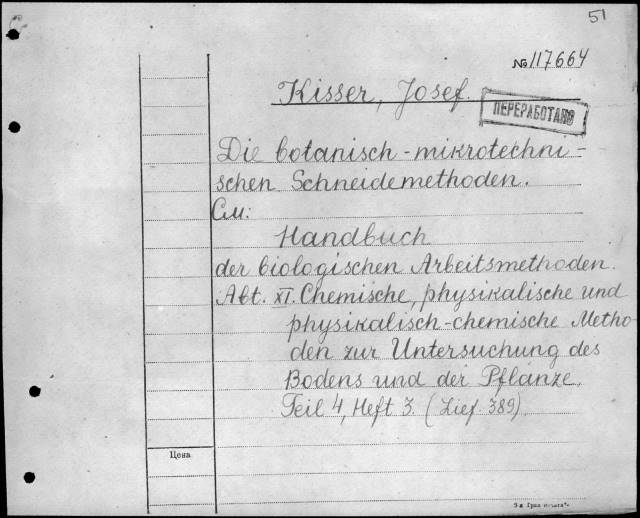 51
№ 117664
Kisser, Josef.
ПЕРЕРАБОТАНО
Die botanisch-mikrotechni-
schen Schneidemethoden.
См:
Handbuch
der biologischen Arbeitsmethoden.
Abt. XI. Chemische, physikalische und
physikalisch-chemische Metho-
den zur Untersuchung des
Bodens und der Pflanze.
Teil 4, Heft 3. (Lief. 389).
Цена